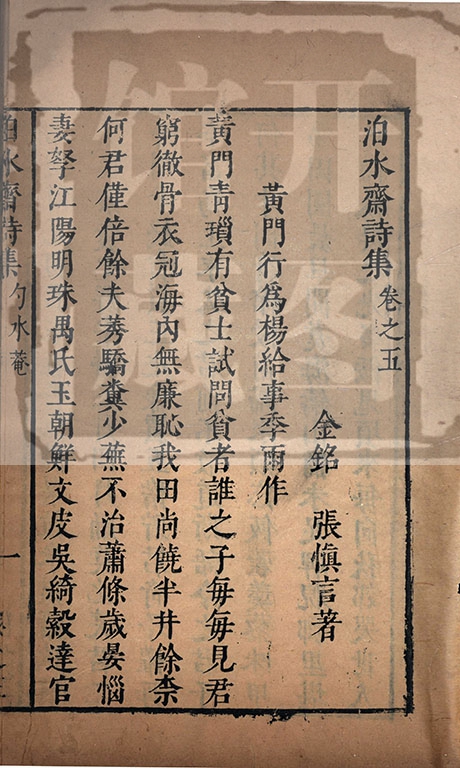 泊水齋詩集 卷之五
金銘 張慎言著
黃門行爲楊給事季雨作
黃門靑瑣有貧士試問貧者誰之子每每見君
窮徹骨衣冠海內無廉恥我田尚饒半井餘柰
何君僅倍餘夫莠驕糞少蕪不治蕭條歲晏惱
妻孥江陽明珠禺氏玉朝鮮文皮吳綺縠達官
泊水齋詩集 勺水菴
一
開圖館藏